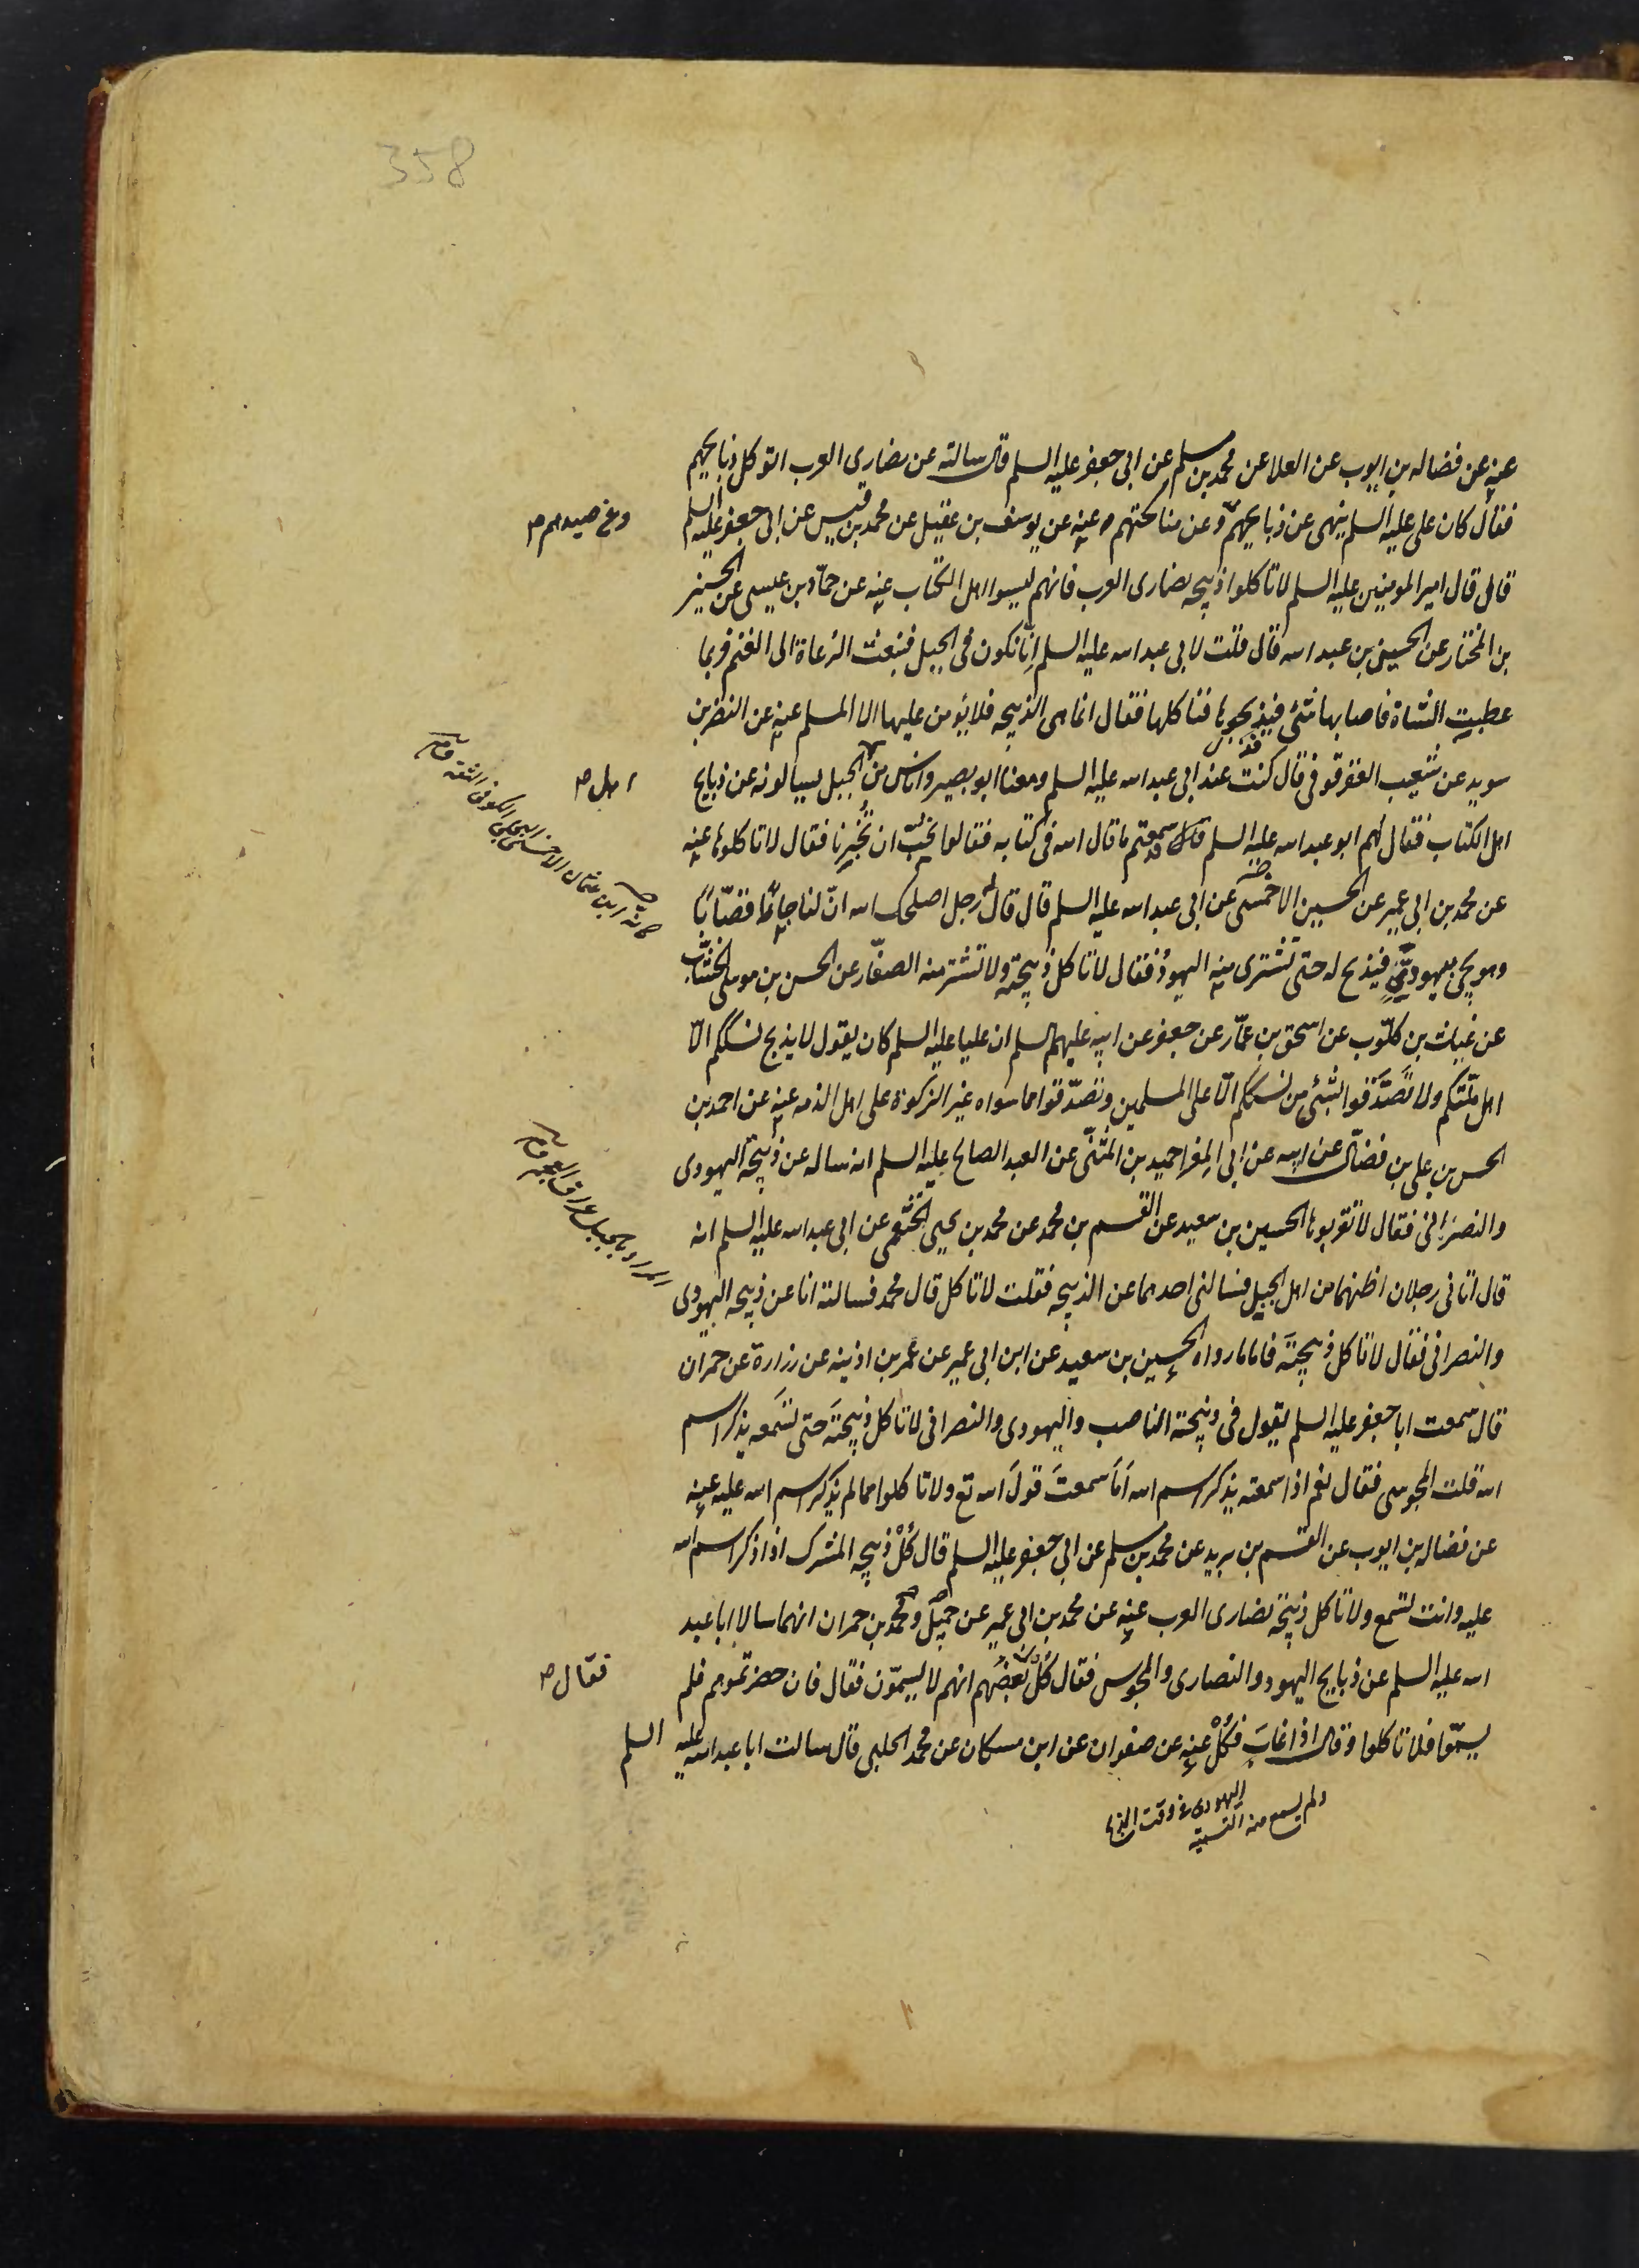 358
عنه عن فضاله بن ايوب عن العلا عن محمد بن مسلم عن ابى جعفر عليه السلم قال سالته عن نصارى العرب اتوكل ذبايحهم
فقال كان على عليه السلم ينهى عن ذبايحهم وعن مناكحتهم عنه عن يوسف بن عقيل عن محمد بن قيس عن ابى جعفر عليه السلم
وعن صيدهم ص
قال قال امير المومنين عليه السلم لا تاكلوا ذبيحه نصارى العرب فانهم ليسوا اهل الكتاب عنه عن حماد بن عيسى عن الحسين
بن المختار عن الحسين بن عبد الله قال قلت لابى عبد الله عليه السلم اِنّا نكون فى الجبل فنبعث الرعاة الى الغنم فربما
عطبت الشاة فاصابها شئ فيذبحونها فناكلها فقال انما هى الذبيحه فلا يؤمن عليها الا المسلم عنه عن النضر بن
سويد عن شعيب العقرقوفى قال كنت عند ابى عبد الله عليه السلم ومعنا ابو بصير واناس من الجبل يسالونه عن ذبايح
اهل ص
اهل الكتاب فقال لهم ابو عبد الله عليه السلم قد سمعتم ما قال الله فى كتابه فقالوا نحبّ ان تُخبرنا فقال لا تاكلوها عنه
عن محمد بن ابى عمير عن الحسين الاحمسى عن ابى عبد الله عليه السلم قال قال له رجل اصلحك الله انّ لنا جارًا قصّابًا
وهو يجئ بيهوديّ فيذبح له حتى تشترى منه اليهود فقال لا تاكل ذبيحته ولا تشتر منه الصفّار عن الحسن بن موسى الخشّاب
عن غياث بن كلّوب عن اسحق بن عمّار عن جعفر عن ابيه عليهم السلم ان عليا عليه السلم كان يقول لا يذبح نسككم الّا
اهل ملّتكم ولا تَصَدَّقوا بشئ من نسككم الّا على المسلمين وتصدّقوا بما سواه غير الزكوة على اهل الذمه عنه عن احمد بن
الحسن بن على بن فضّال عن ابيه عن ابى المغرا حميد بن المثنّى عن العبد الصالح عليه السلم انه ساله عن ذبيحة اليهودى
والنصرانى فقال لا تقربوها الحسين بن سعيد عن القسم بن محمد عن محمد بن يحيى الخثعمى عن ابى عبد الله عليه السلم انه
قال اتانى رجلان اظنهما من اهل الجبل فسالنى احدهما عن الذبيحه فقلت لا تاكل قال محمد فسالته انا عن ذبيحه اليهودى
والنصرانى فقال لا تاكل ذبيحتَه فاما ما رواه الحسين بن سعيد عن ابن ابى عمير عن عمر بن اذينه عن زرارة عن حمران
قال سمعت ابا جعفر عليه السلم يقول فى ذبيحة الناصب واليهودى والنصرانى لا تاكل ذبيحتَه حتى تسمَعه يذكر اسم
الله قلت المجوسى فقال نعم اذا سمعته يذكر اسم الله اَمَا سمعتَ قولَ الله تع ولا تاكلوا مما لم يذكر اسم الله عليه عنه
عن فضاله بن ايوب عن القسم بن بريد عن محمد بن مسلم عن ابى جعفر عليه السلم قال كُلْ ذبيحه المشرك اذا ذكر اسم الله
عليه وانت تسمع ولا تاكل ذبيحة نصارى العرب عنه عن محمد بن ابى عمير عن جميل ومحمد بن حمران انهما سالا ابا عبد
الله عليه السلم عن ذبايح اليهود والنصارى والمجوس فقال كُلْ بعضهم انهم لا يسمّون فقال فان حضرتموهم فلم
فقال ص
يسمّوا فلا تاكلوا وقال اذا غابَ فكُلْ عنه عن صفوان عن ابن مسكان عن محمد الحلبى قال سالت ابا عبد الله عليه السلم
كانه ابن عثمان الاحمسى البجلى الكوفى الثقه
المراد بالجبل عراق العجم
ولم يسمع منه التسمية
اليهودى وقت